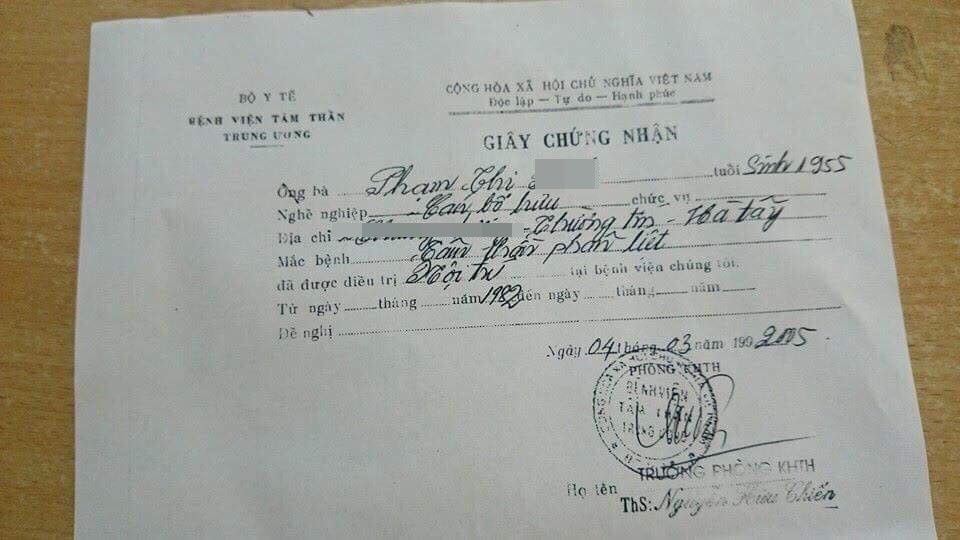 BỘ Y TẾ
BỆNH VIỆN TÂM THẦN
TRUNG ƯƠNG
CỘNG HÒA XÃ HỘI CHỦ NGHĨA VIỆT NAM
Độc lập — Tự do — Hạnh phúc
GIẤY CHỨNG NHẬN
Ông bà Phạm Thị tuổi Sinh 1955
Nghề nghiệp Cán bộ hưu chức vụ
Địa chỉ - Thường tín - Hà tây
Mắc bệnh Tâm thần phân liệt
đã được điều trị Nội trú tại bệnh viện chúng tôi.
Từ ngày tháng năm 1982 đến ngày tháng năm
Đề nghị
Ngày 04 tháng 03 năm 199 2005.
PHÒNG KHTH
BỆNH VIỆN
TÂM THẦN
TRUNG ƯƠNG
TRƯỞNG PHÒNG KHTH
Họ tên
ThS: Nguyễn Hữu Chiến